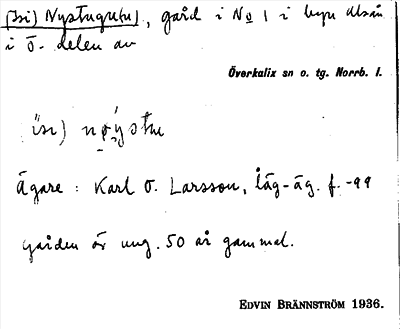 (Isi) Nystugu(tu), gård i No 1 i byn Alsån
i ö. delen av
Överkalix sn o. tg. Norrb. l.
isi) nøystu
Ägare: Karl O. Larsson, läg-äg. f. -99
gården är ung. 50 år gammal.
EDVIN BRÄNNSTRÖM 1936.